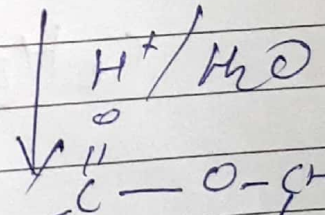 H⁺/H₂O
O
C — O – CH